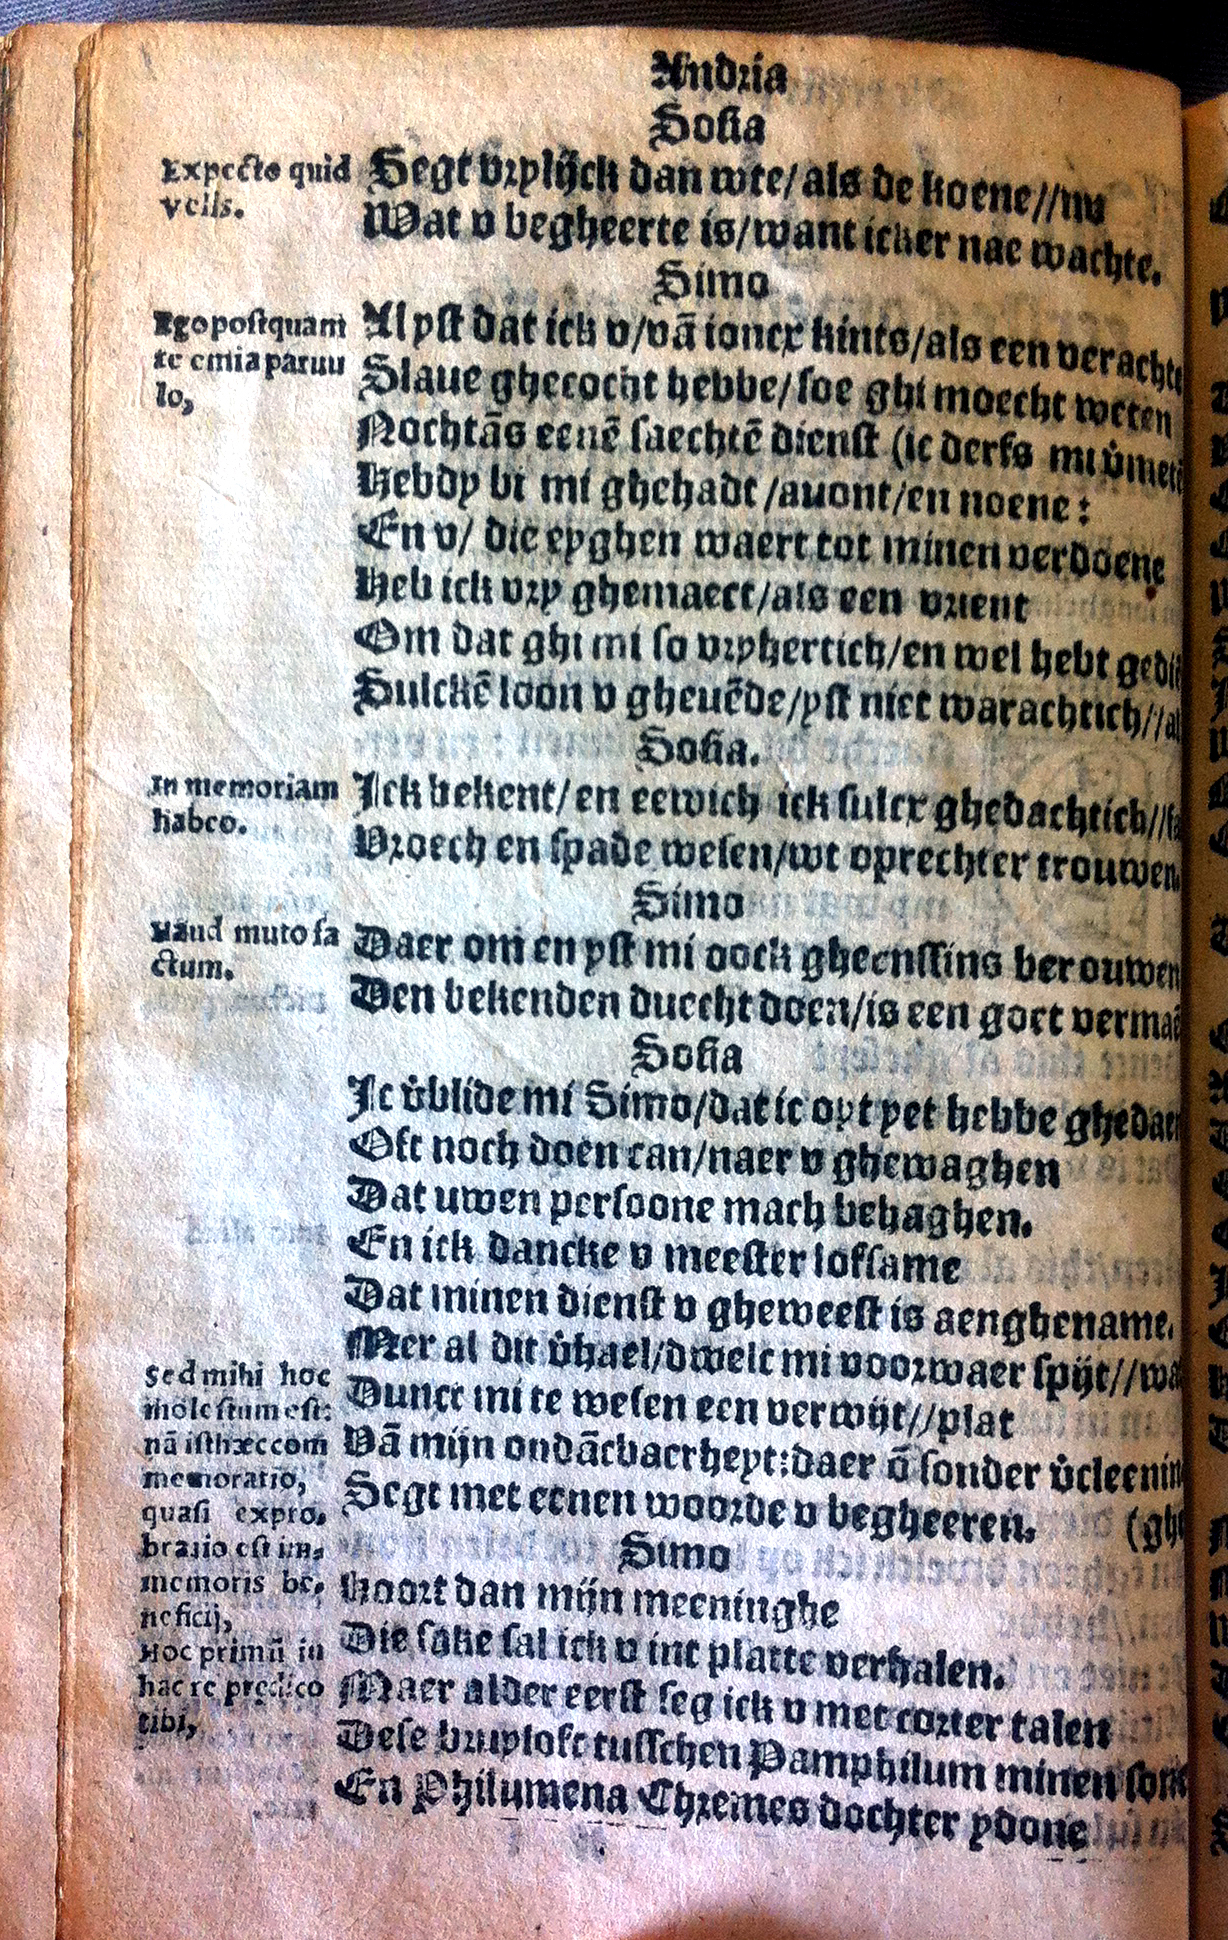 Andria
Sosia
Expecto quid
velis.
Segt vrylijck dan wte/als de koene//nu
Wat v begheerte is/want icker nae wachte.
Simo
Ego postquam
te emia paruu
lo,
Al yst dat ick v/vā ioncx kints/als een verachte
Slaue ghecocht hebbe/soe ghi moecht weten
Nochtās eenē saechtē dienst (ic derfs mi
Hebdy bi mi ghehadt/auont/en noene:
En v/ die eyghen waert tot minen verdoene
Heb ick vry ghemaect/als een vrient
Om dat ghi mi so vryhertich/en wel hebt
Sulckē loon v gheuēde/yst niet warachtich//
Sosia.
In memoriam
habeo.
Ick bekent/en eewich ick sulcx ghedachtich//
Vroech en spade wesen/wt oprechter trouwen.
Simo
Haud muto fa
ctum.
Daer om en yst mi oock gheenssins berouwen
Den bekenden duecht doen/is een goet
Sosia
Ic v̊blide mi Simo/dat ic oyt yet hebbe
Oft noch doen can/naer v ghewaghen
Dat uwen persoone mach behaghen.
En ick dancke v meester lofsame
Dat minen dienst v gheweest is aenghename.
Sed mihi hoc
molestum est:
nā isthæc com
memoratio,
quasi expro,
bratio est im,
memoris be,
neficij,
Mer al dit v̊hael/dwelc mi voorwaer spijt//
Dunct mi te wesen een verwijt//plat
Vā mijn ondācbaerheyt:daer ō sonder
Segt met eenen woorde v begheeren.
Simo
Hoc primū in
hac re prędico
tibi,
Hoort dan mijn meeninghe
Die sake sal ick v int platte verhalen.
Maer alder eerst seg ick v met corter talen
Dese bruyloft tusschen Pamphilum minen
En Philumena Chremes dochter ydone